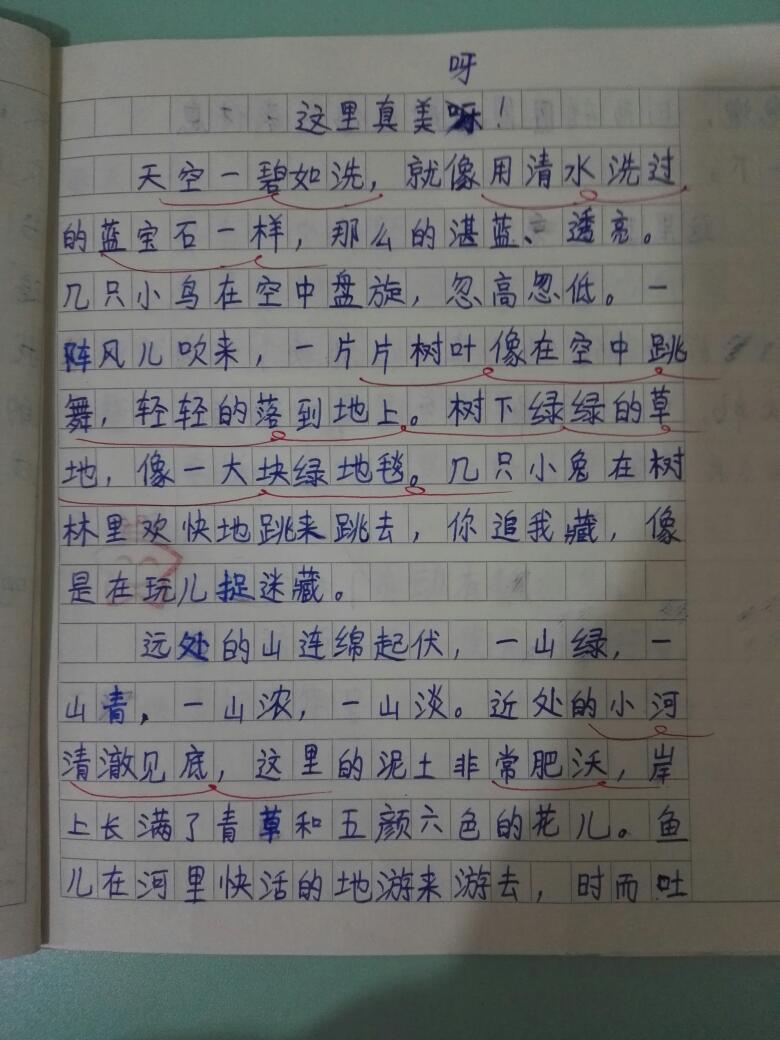 呀
这里真美呀！
天空一碧如洗，就像用清水洗过
的蓝宝石一样，那么的湛蓝、透亮。
几只小鸟在空中盘旋，忽高忽低。一
阵风儿吹来，一片片树叶像在空中跳
舞，轻轻的落到地上。树下绿绿的草
地，像一大块绿地毯。几只小兔在树
林里欢快地跳来跳去，你追我藏，像
是在玩儿捉迷藏。
远处的山连绵起伏，一山绿，一
山青，一山浓，一山淡。近处的小河
清澈见底，这里的泥土非常肥沃，岸
上长满了青草和五颜六色的花儿。鱼
儿在河里快活的地游来游去，时而吐